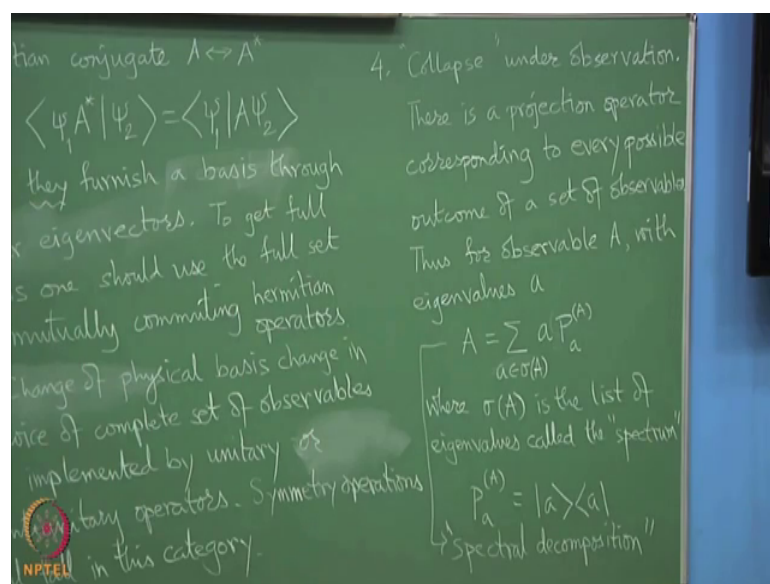 tian conjugate A ↔ A*
⟨ψ₁A*|ψ₂⟩ = ⟨ψ₁|Aψ₂⟩
they furnish a basis through
r eigenvectors. To get full
s one should use the full set
mutually commuting hermitian
operators
change of physical basis change in
oice of complete set of observables
implemented by unitary or
unitary operators. Symmetry operations
in this category.
4. "Collapse" under observation.
There is a projection operator
corresponding to every possible
outcome of a set of observables
Thus for observable A, with
eigenvalues a
A = ∑ a P_a^(A)
a∈σ(A)
where σ(A) is the list of
eigenvalues called the "spectrum"
P_a^(A) = |a⟩⟨a|
↳ "Spectral decomposition"
NPTEL